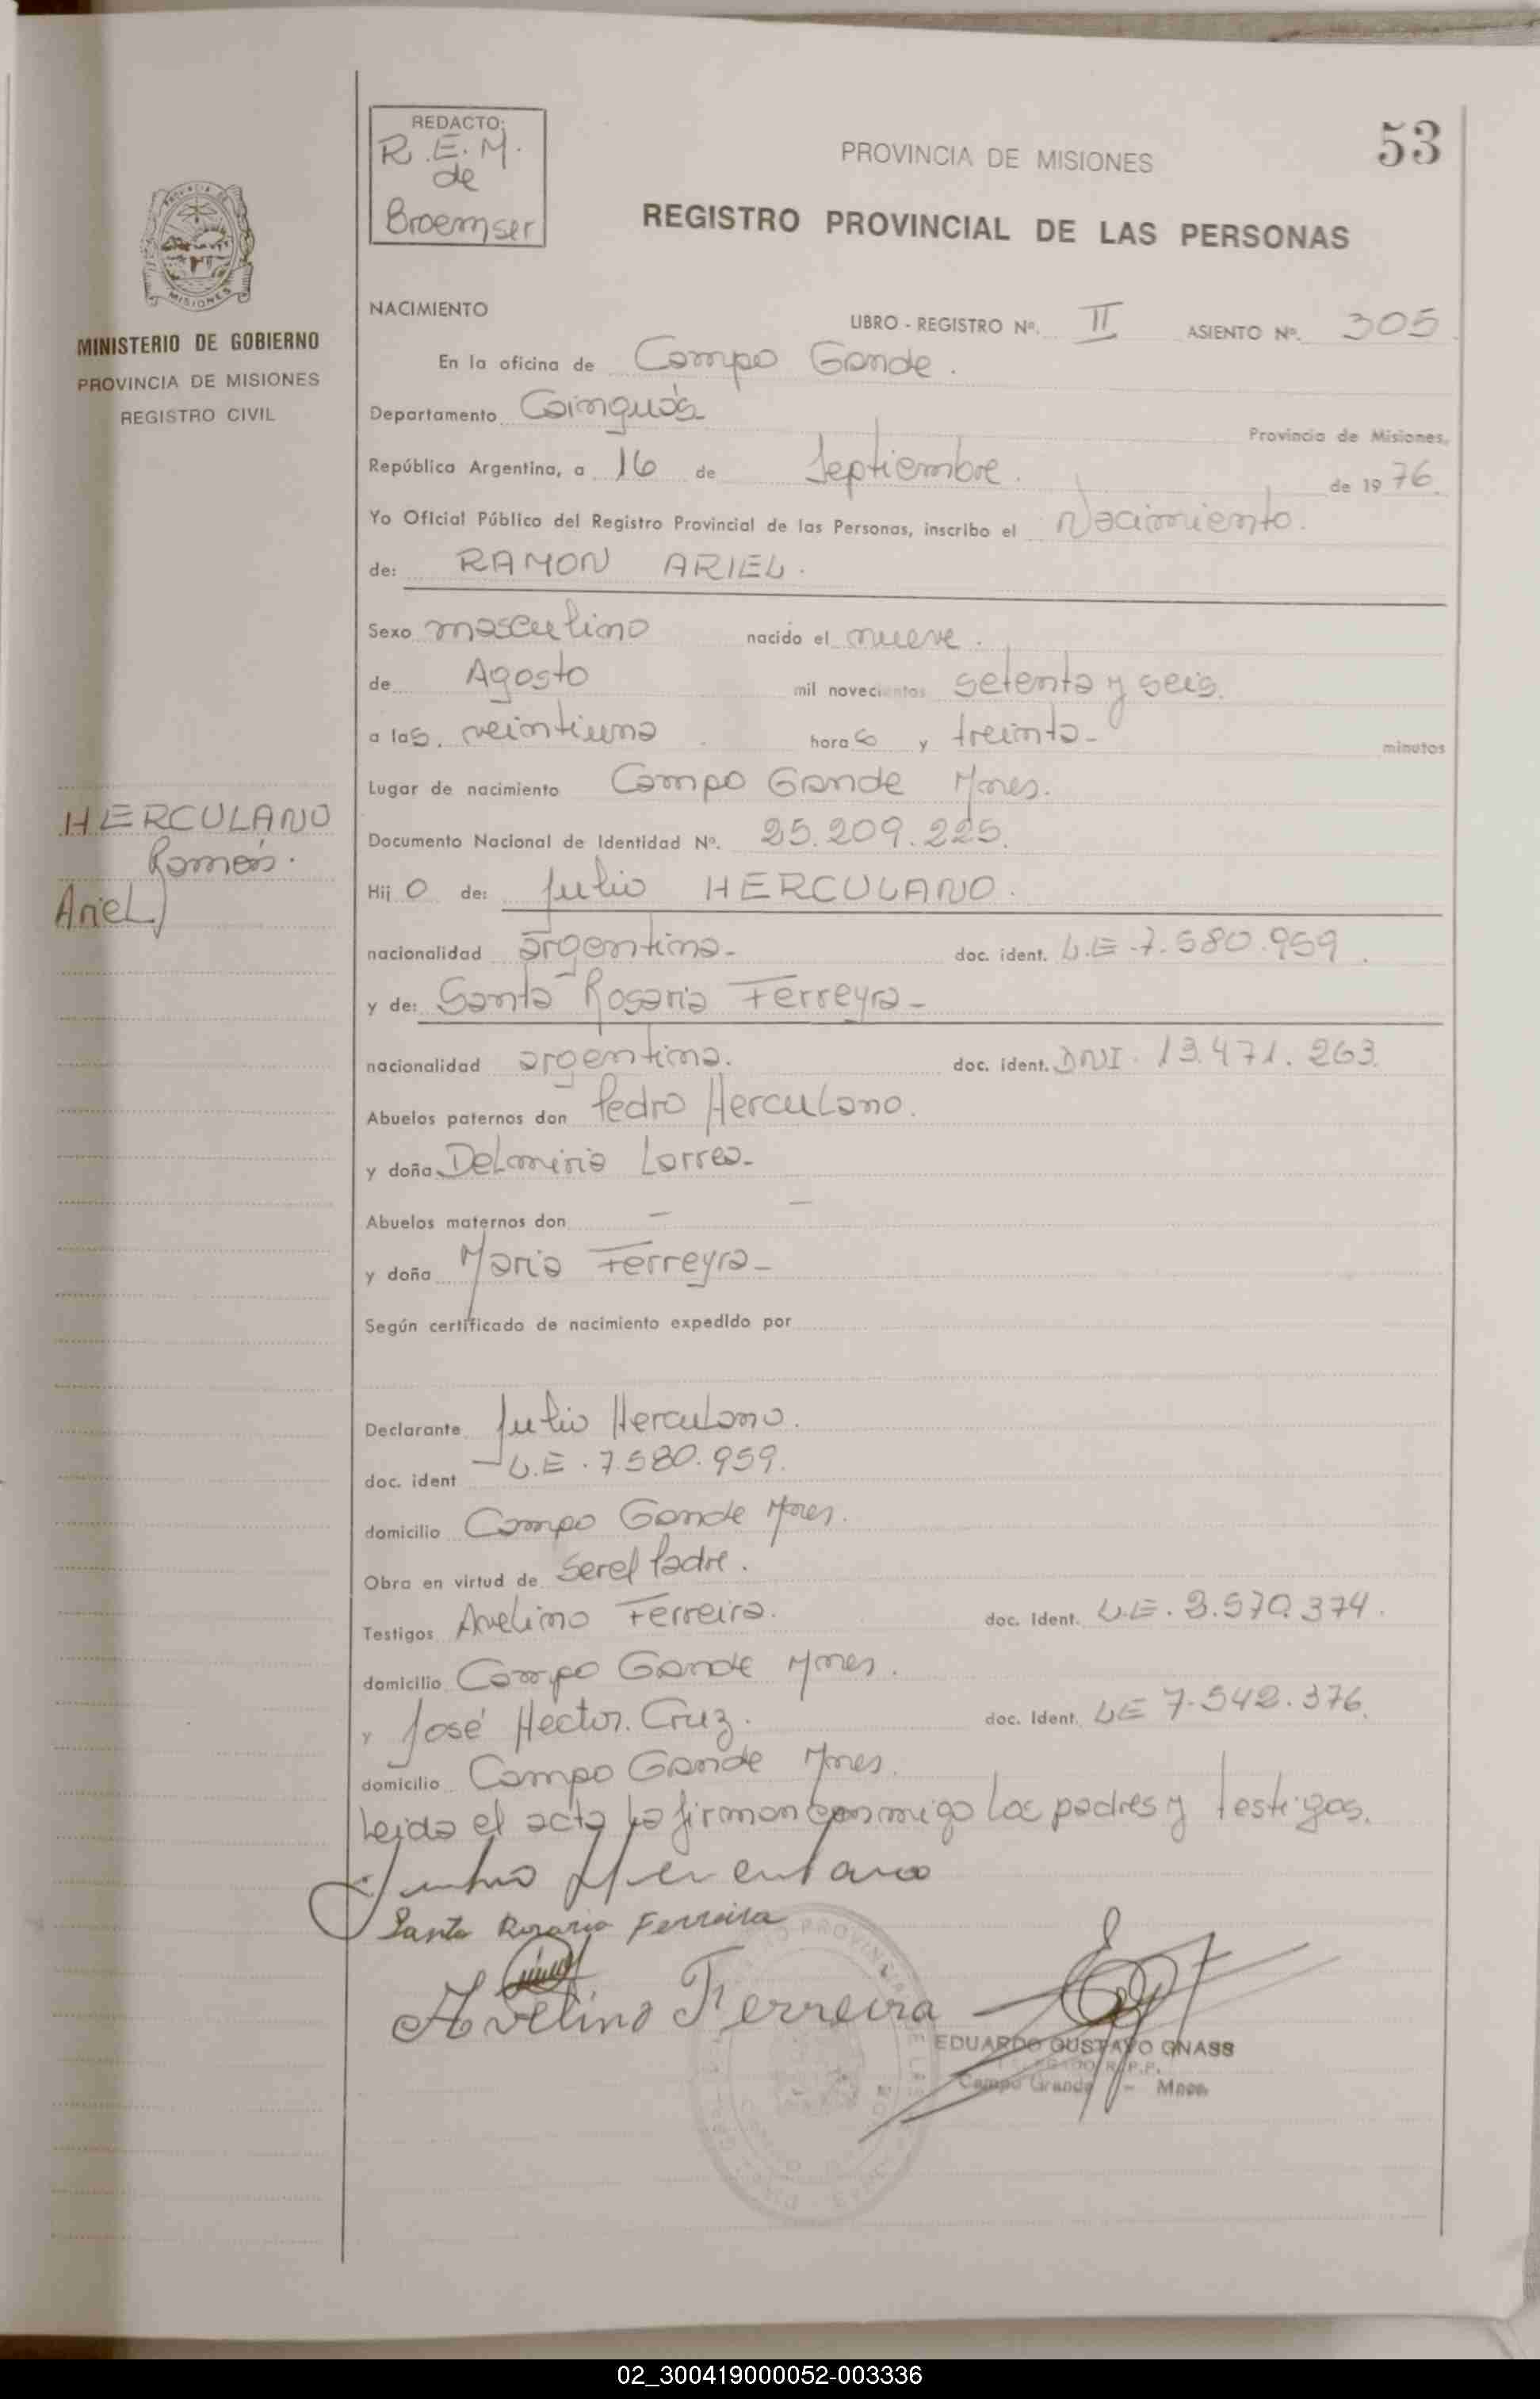 53
REDACTO:
R.E.M.
de
Broemser
PROVINCIA DE MISIONES
REGISTRO PROVINCIAL DE LAS PERSONAS
MISIONES
MINISTERIO DE GOBIERNO
PROVINCIA DE MISIONES
REGISTRO CIVIL
NACIMIENTO
LIBRO - REGISTRO Nº. II ASIENTO Nº. 305
En la oficina de Campo Gande.
Departamento Cainguás
Provincia de Misiones,
República Argentina, a 16 de Septiembre. de 1976.
Yo Oficial Público del Registro Provincial de las Personas, inscribo el Nacimiento.
de: RAMON ARIEL.
Sexo masculino nacido el nueve.
de Agosto mil novecientos setenta y seis.
a las. veintiuna horas y treinta- minutos
Lugar de nacimiento Campo Gande Mnes.
Documento Nacional de Identidad Nº. 25.209.225.
HERCULANO
Ramón.
Ariel
Hijo de: Julio HERCULANO.
nacionalidad argentina- doc. ident. L.E.7.580.959.
y de: Santa Rosaria Ferreyra-
nacionalidad argentina. doc. ident. DNI. 13.471.263.
Abuelos paternos don Pedro Herculano.
y doña Delmiria Larrea-
Abuelos maternos don — —
y doña Maria Ferreyra-
Según certificado de nacimiento expedido por
Declarante Julio Herculano.
doc. ident -L.E.7.580.959.
domicilio Campo Gande Mnes.
Obra en virtud de ser el Padre.
Testigos Avelino Ferreira. doc. Ident. L.E. 8.570.374.
domicilio Campo Gande Mnes.
y José Hector. Cruz. doc. Ident. LE 7.542.376.
domicilio Campo Gande Mnes.
Leida el acta la firman conmigo los padres y testigos.
Santa Rosaria Ferreira
Avelino Ferreira
EDUARDO GUSTAVO GNASS
Campo Grande - Mnes.
02_300419000052-003336